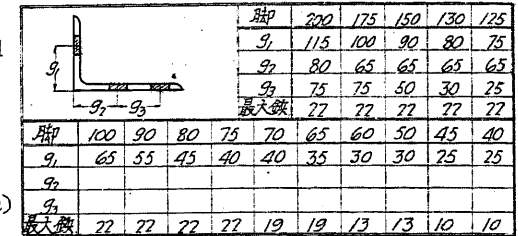 脚 200 175 150 130 125
g1 115 100 90 80 75
g2 80 65 65 65 65
g3 75 75 50 30 25
最大鋲 22 22 22 22 22
g1
g2 g3
脚 100 90 80 75 70 65 60 50 45 40
g1 65 55 45 40 40 35 30 30 25 25
g2
g3
最大鋲 22 22 22 22 19 19 13 13 10 10
)